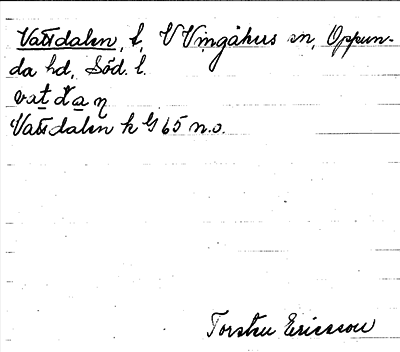 Vattdalen, t, V Vingåkers sn, Oppun-
da hd, Söd. l.
Vattdalen k G 65 n.o.
Torsten Ericsson